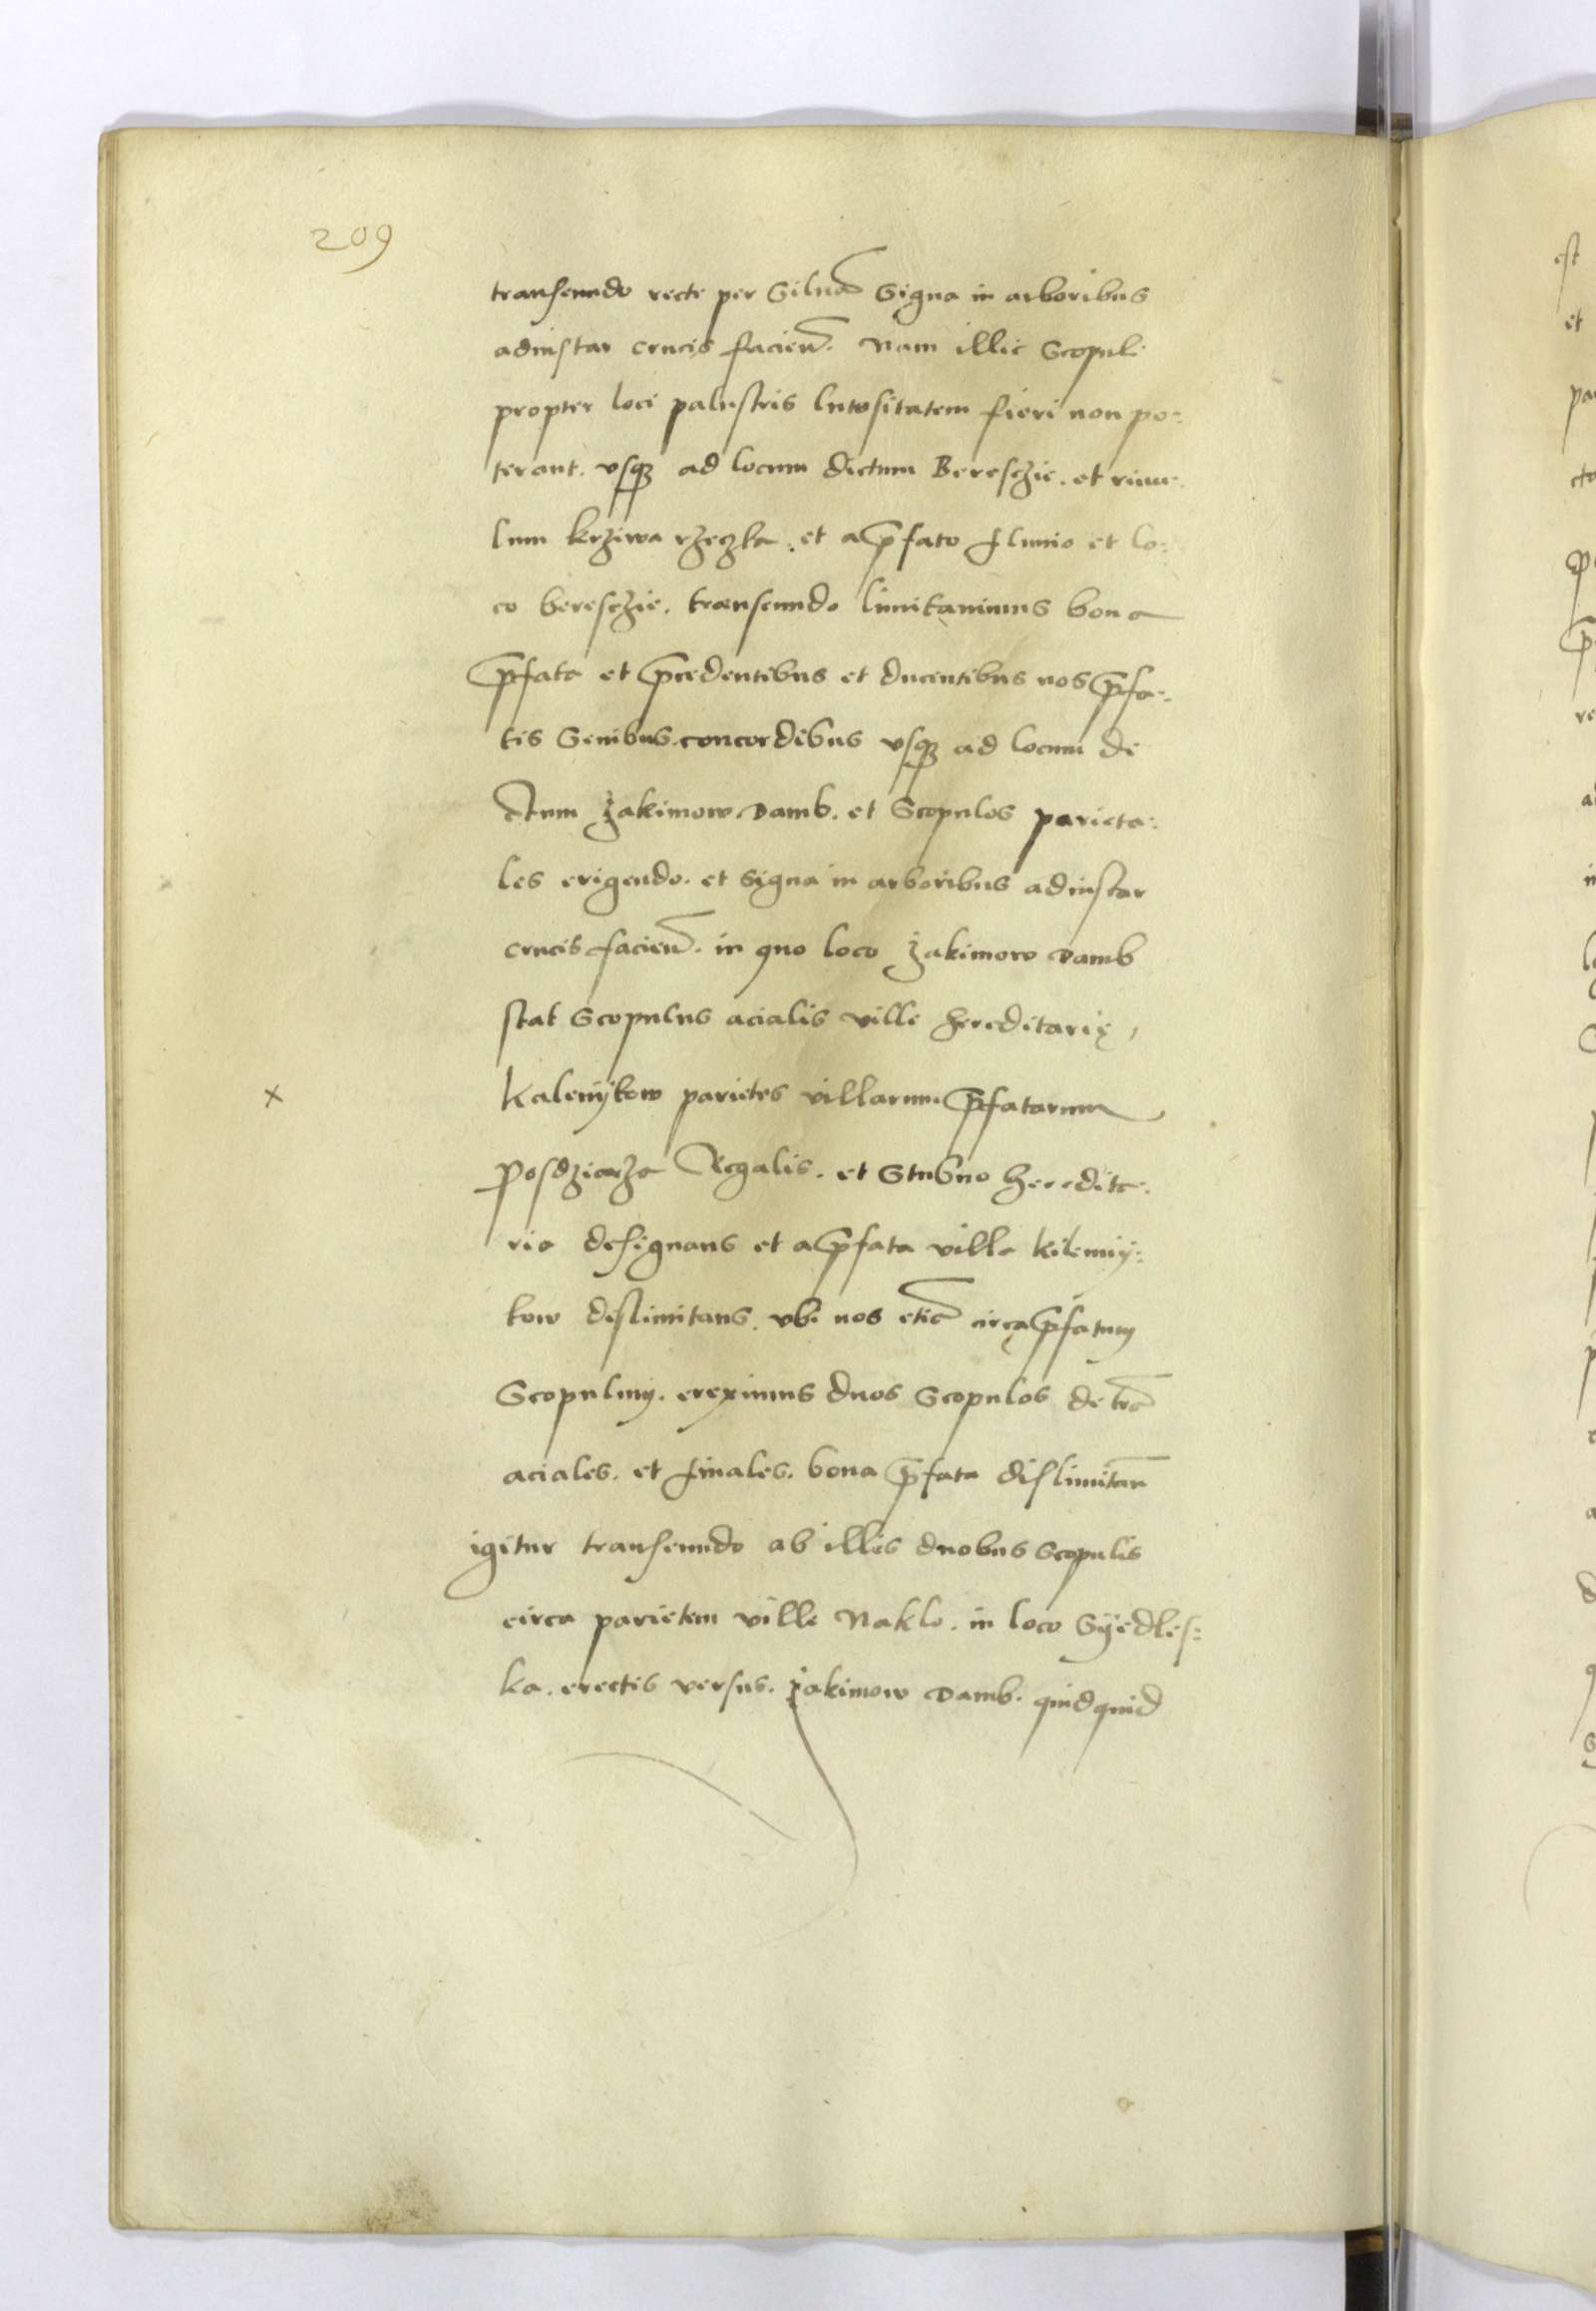 209
transeundo recte per Siluā Signa in arboribus
adinstar crucis facieñ. Nam illic Scopuli
propter loci palustris lutositatem fieri non po-
terant. vsq3 ad locum dictum Beresczie. et riuu-
lum krziwa rzeczka. et a p̄fato fluuio et lo-
co beresczie. transeundo limitauimus bona
p̄fata et p̄cedentibus et ducentibus nos p̄fa-
tis Senibus concordibus vsq3 ad locum di
ctum żakimow Damb. et Scopulos parieta-
les erigendo. et Signa in arboribus adinstar
crucis facieñ. in quo loco żakimow Damb
stat Scopulus acialis ville hereditarię,
x
Kalenijkow parietes villarum p̄fatarum
Posdziacza Regalis. et Stubno heredita-
ria designans et a p̄fata villa kilemij-
kow dislimitans. vbi nos etiā circa p̄fatum
Scopulum. ereximus duos Scopulos de trā
aciales. et finales. bona p̄fata dislimitan̄
igitur transeundo ab illis duobus Scopulis
circa parietem ville Naklo. in loco Syedles-
ka. erectis versus. żakimow Damb. quidquid
est
et